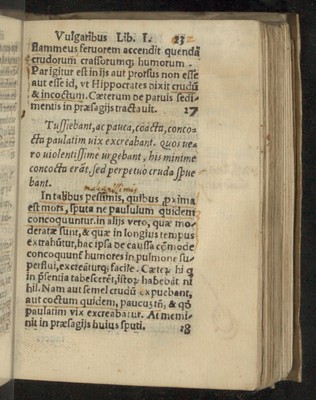 Vulgaribus Lib. I. 23
flammeus feruorem accendit quendã
crudorum crassorumq; humorum.
Par igitur est in ijs aut prorsus non esse
aut esse id, vt Hippocrates dixit crudũ
& incoctum. Cæterum de paruis sedi-
mentis in præsagijs tractauit. 17
Tussiebant, ac pauca, coacta, conco-
cta paulatim vix excreabant. Quos ve-
ro violentissime urgebant, his minime
concocta erãt, sed perpetuo cruda spue
bant.
In talibus pessimis, quibus, pxima
est mors, sputa ne paululum quidem
concoquuntur. in alijs vero, quæ mo-
deratæ sunt, & quæ in longius tempus
extrahũtur, hac ipsa de caussa cõmode
concoquunt humores in pulmone su-
perflui, excreãturq; facile. Cæter hi q
in pñsentia tabescerẽt, istor habebãt ni
hil. Nam aut semel crudũ expuebant,
aut coctum quidem, paucũ tñ, & qđ
paulatim vix excreabatur. At memi-
nit in præsagijs huius sputi. 18